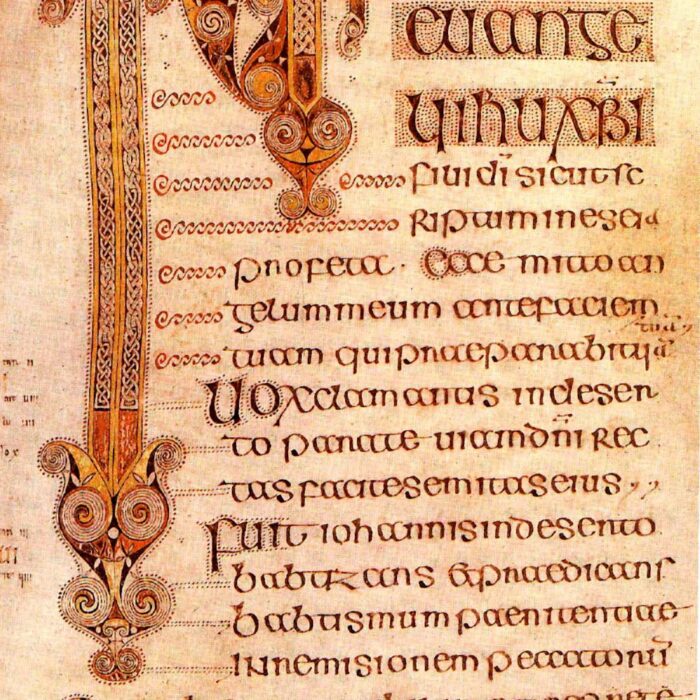 euange
lii ihu xp̄i
fili dī sicut sc
riptum in eseia
profeta · Ecce mitto an
gelum meum ante faciem
tuā
tuam qui praeparabit uiā
uox clamantis in deser
to parate uiam dn̄i rec
tas facite semitas eius ,,
fuit iohannis in deserto
babtizans & praedicans
babtismum paenitentiae
in remisionem peccatorū